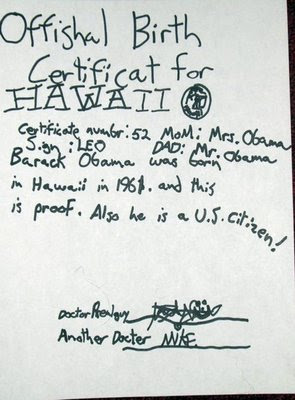 Offishal Birth
Certificat for
HAWAII
Certificate numbr: 52 MoM: Mrs. Obama
Sign: LEO DAD: Mr. Obama
Barack Obama was born
in Hawaii in 1961. and this
is proof. Also he is a U.S. Citizen!
Doctor Realguy
Another Docter MIKE